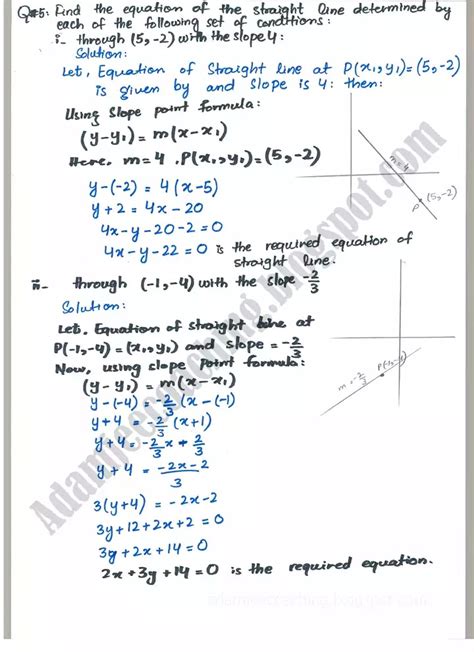 Q#5: Find the equation of the straight line determined by
each of the following set of conditions:
i- through (5,-2) with the slope 4:
Solution:
Let, Equation of Straight line at P(x₁,y₁)=(5,-2)
is given by and slope is 4: then:
Using slope point formula:
(y-y₁)=m(x-x₁)
Here, m=4 , P(x₁,y₁)=(5,-2)
m=4
(5,-2)
P
y-(-2) = 4(x-5)
y+2 = 4x-20
4x-y-20-2=0
4x-y-22=0 is the required equation of
straight line.
ii- through (-1,-4) with the slope -2/3
Solution:
Let, Equation of straight line at
P(-1,-4)=(x₁,y₁) and slope = -2/3
Now, using slope point formula:
(y-y₁)=m(x-x₁)
m=-2/3
y-(-4) = -2/3 (x-(-1)
y+4 = -2/3 (x+1)
y+4 = -2/3 x + 2/3
y+4 = -2x-2/3
3(y+4) = -2x-2
3y+12+2x+2=0
3y+2x+14=0
2x+3y+14=0 is the required equation.
Adamjeecoaching.blogspot.com
adamjeecoaching.blogspot.com